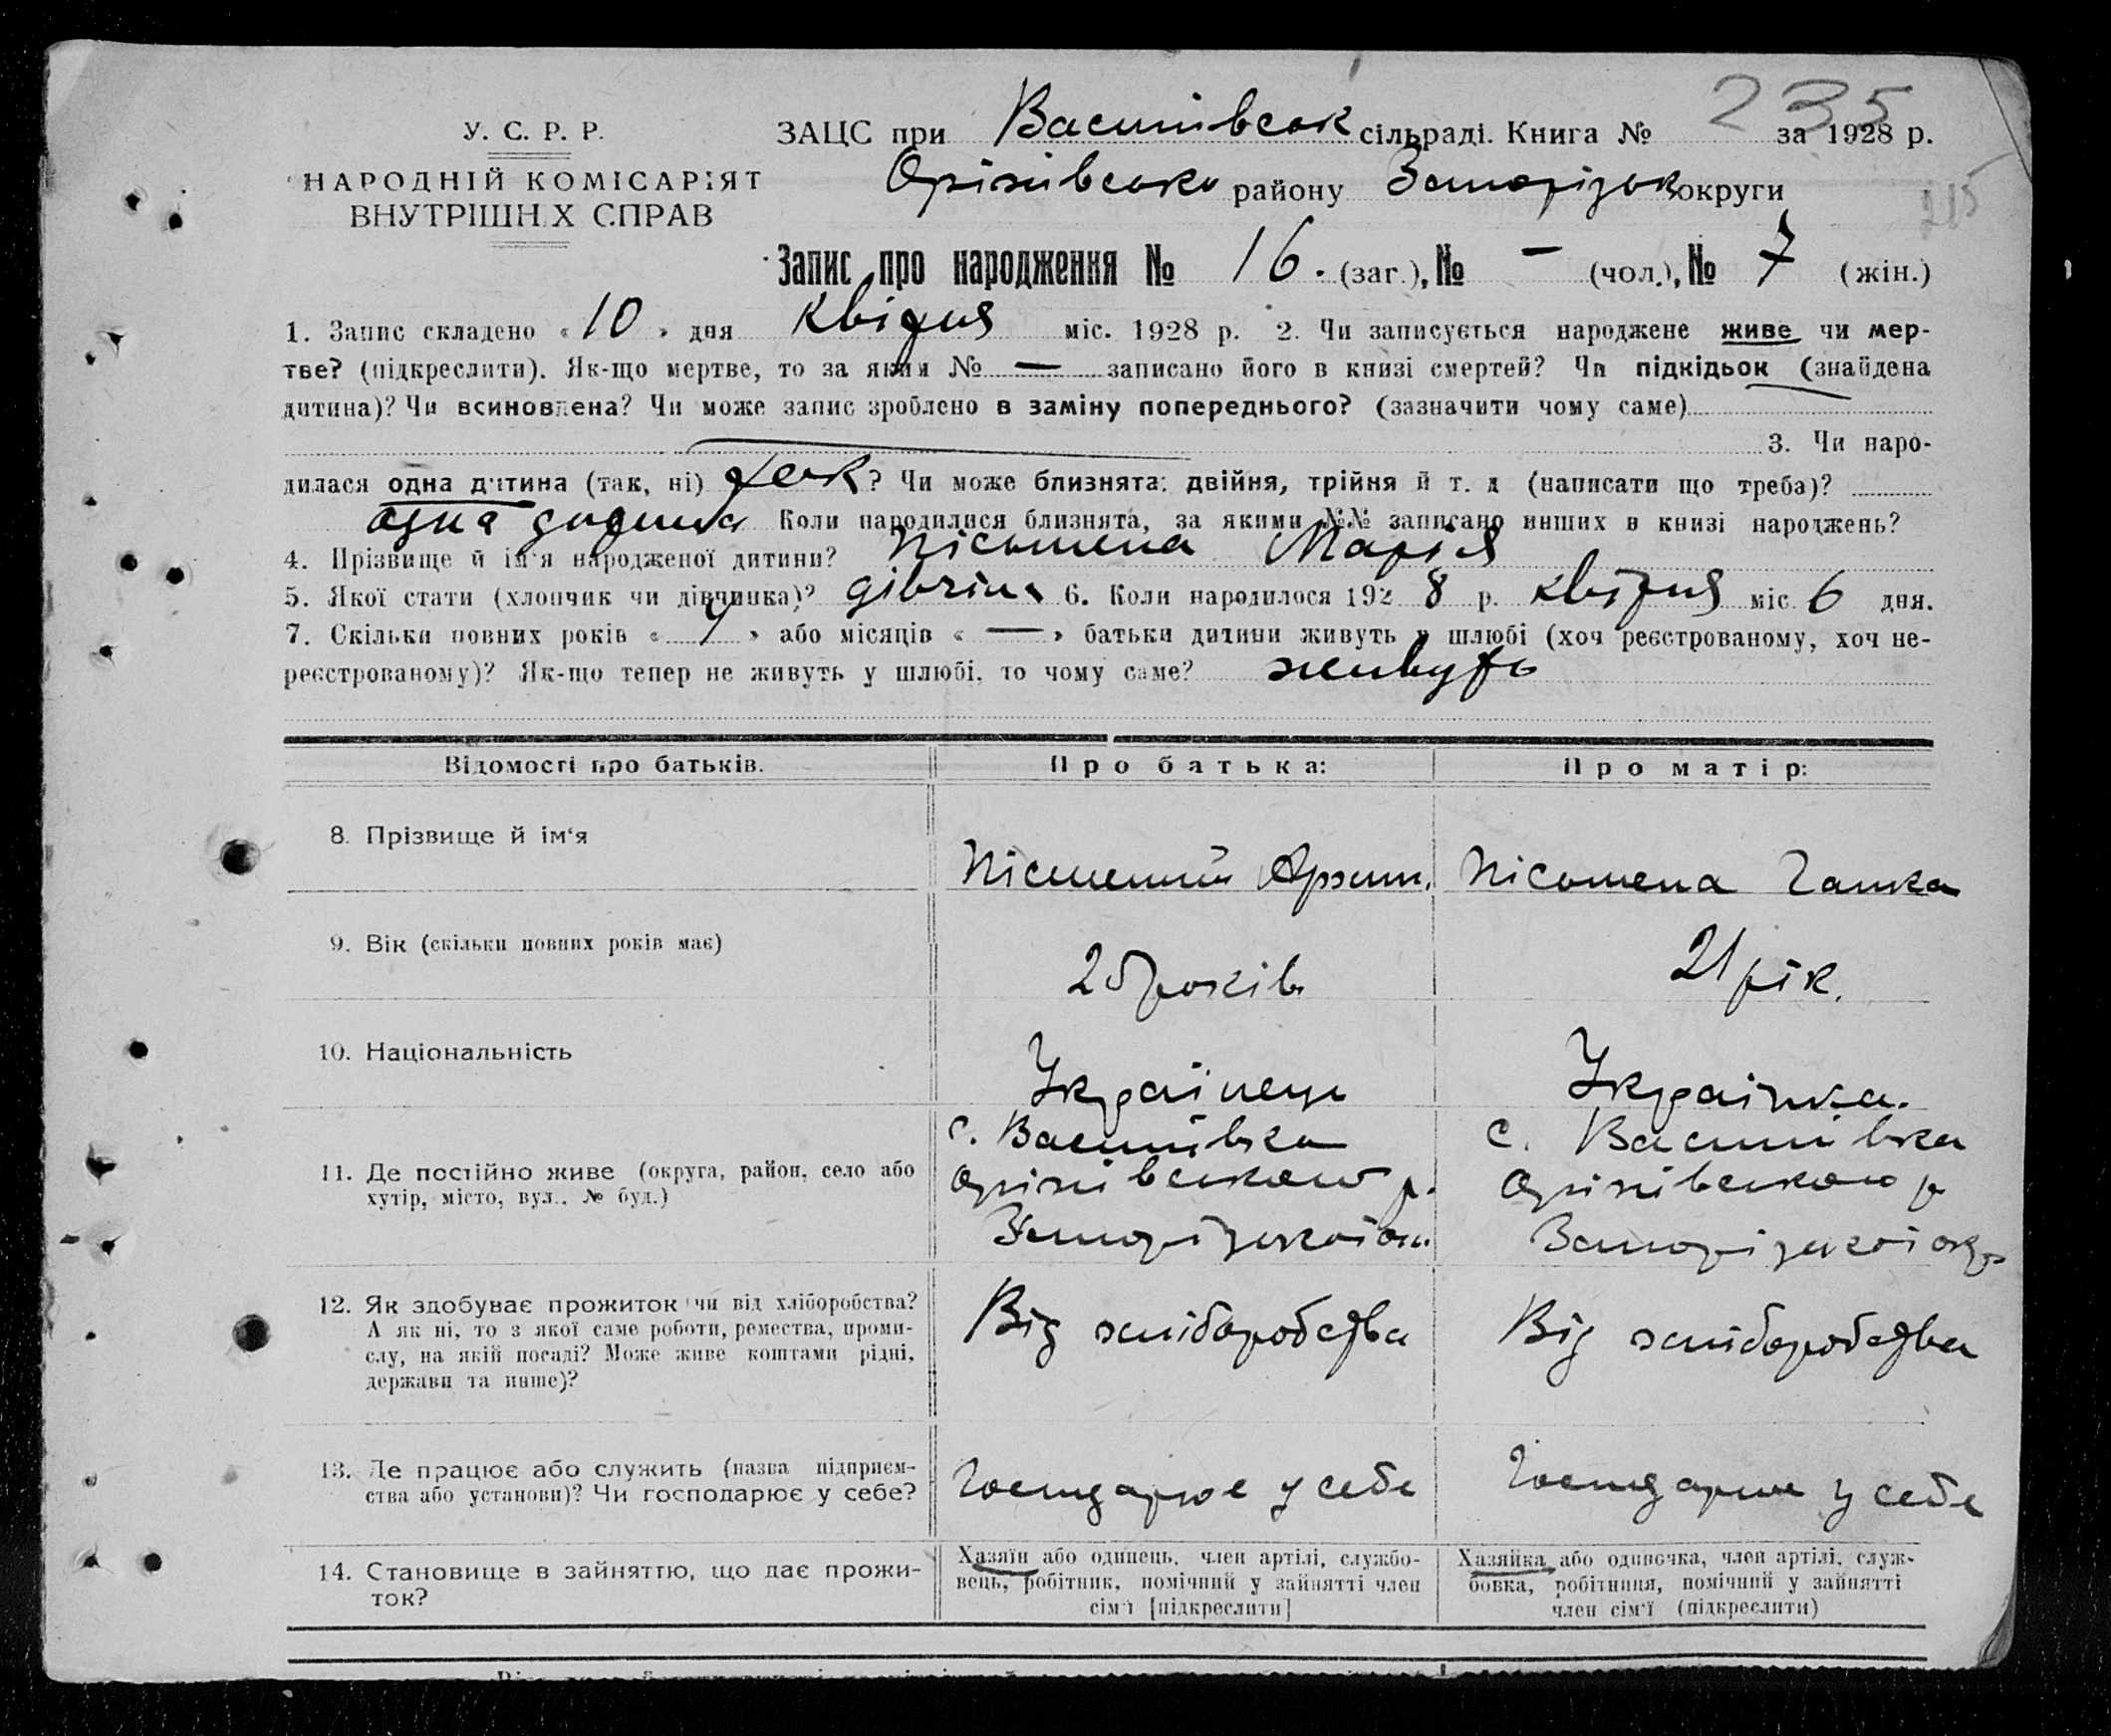 235
У. С. Р. Р.
НАРОДНІЙ КОМІСАРІЯТ
ВНУТРІШНІХ СПРАВ
ЗАЦС при Василівськ сільраді. Книга № за 1928 р.
Оріхівсько району Запорізьк округи
215
Запис про народження № 16. (заг.), № — (чол.), № 7 (жін.)
1. Запис складено « 10 » дня квітня міс. 1928 р. 2. Чи записується народжене живе чи мер-
тве? (підкреслити). Як-що мертве, то за яким № — записано його в книзі смертей? Чи підкідьок (знайдена
дитина)? Чи всиновлена? Чи може запис зроблено в заміну попереднього? (зазначити чому саме)
3. Чи наро-
дилася одна дитина (так, ні) так? Чи може близнята: двійня, трійня й т. д (написати що треба)?
одна дитина Коли народилися близнята, за якими №№ записано инших в книзі народжень?
4. Прізвище й ім'я народженої дитини? Пісьмена Марія
5. Якої стати (хлопчик чи дівчинка)? дівчина 6. Коли народилося 192 8 р. квітня міс. 6 дня.
7. Скільки повних років « » або місяців « — » батьки дитини живуть у шлюбі (хоч реєстрованому, хоч не-
реєстрованому)? Як-що тепер не живуть у шлюбі, то чому саме? живуть
Відомості про батьків. Про батька: Про матір:
8. Прізвище й ім'я Пісменний Архип. Пісьмена Ганка
9. Вік (скільки повних років має) 25 років 21 рік.
10. Національність Українець Українка.
11. Де постійно живе (округа, район, село або
хутір, місто, вул.. № буд.)
с. Василівка
Оріхівського р.
Запорізької ок.
с. Василівка
Оріхівського р
Запорізької окр
12. Як здобуває прожиток чи від хліборобства?
А як ні, то з якої саме роботи, ремества, проми-
слу, на якій посаді? Може живе коштами рідні,
держави та инше)?
Від хліборобства
Від хліборобства
13. Де працює або служить (назва підприєм-
ства або установи)? Чи господарює у себе?
Господарює у себе
Господарює у себе
14. Становище в зайняттю, що дає прожи-
ток?
Хазяїн або одинець, член артілі, службо-
вець, робітник, помічний у зайнятті член
сім'ї [підкреслити]
Хазяйка або одиночка, член артілі, служ-
бовка, робітниця, помічний у зайнятті
член сім'ї (підкреслити)